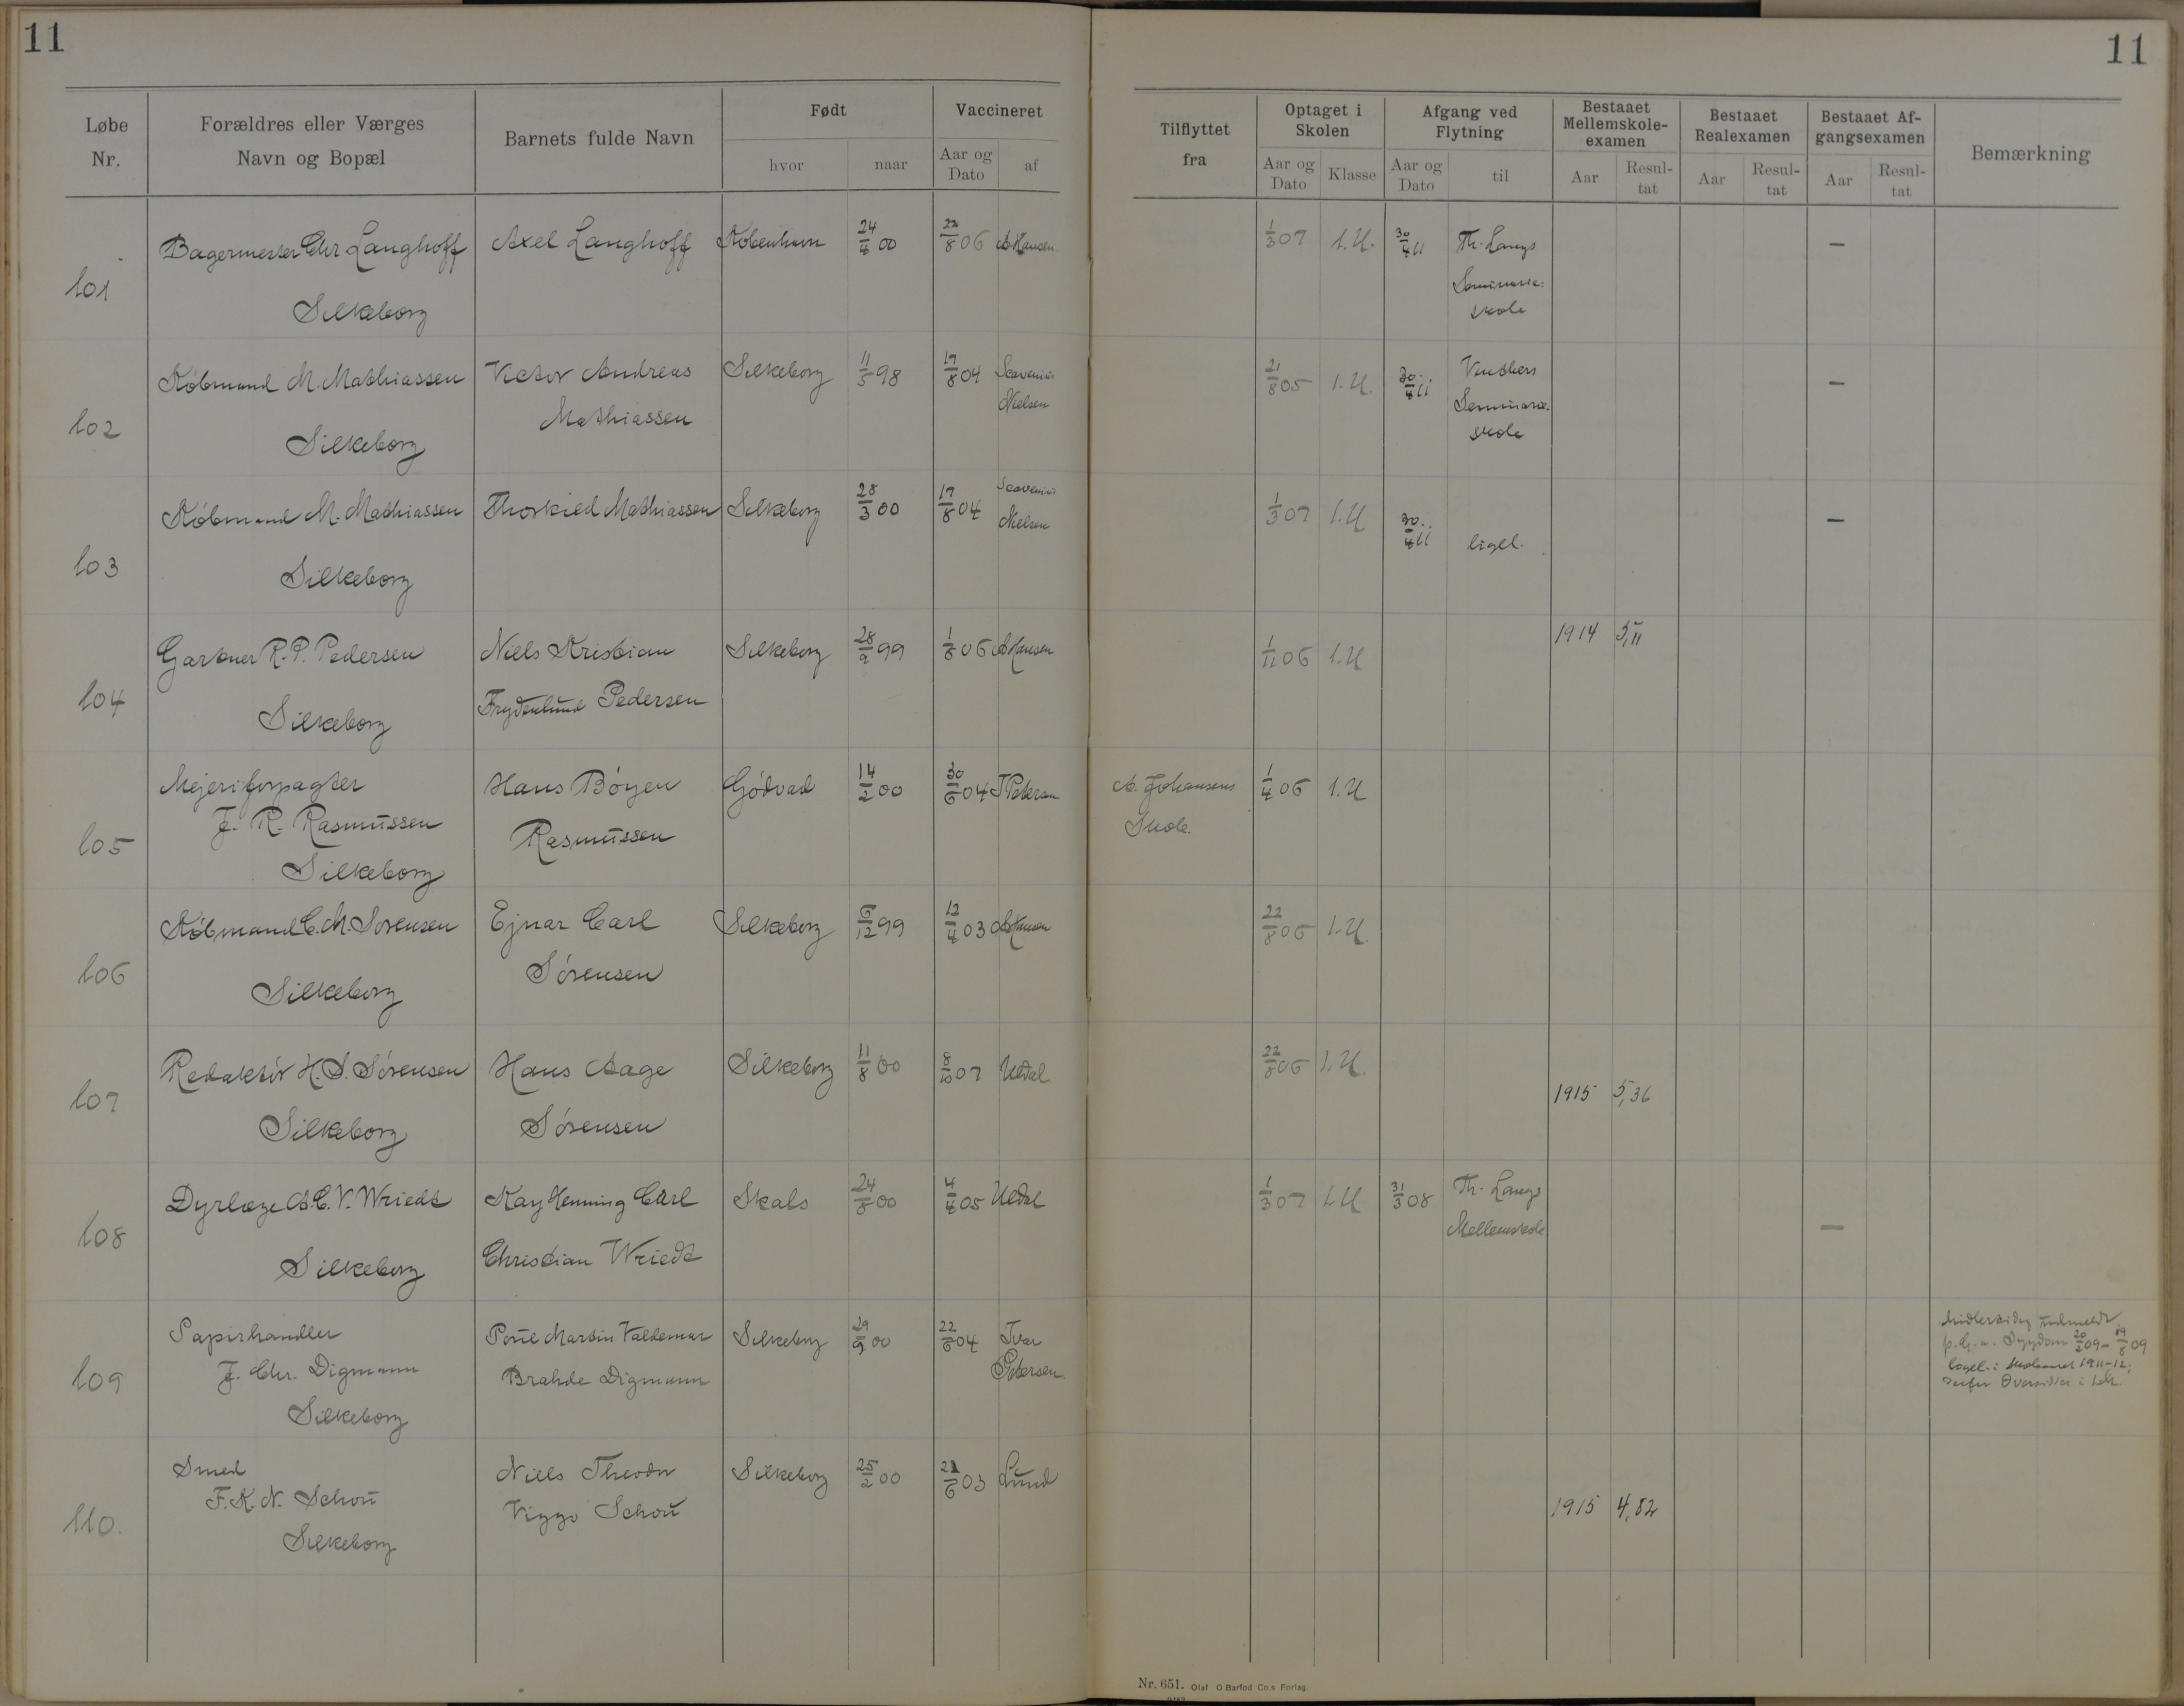 11
11
Løbe Nr.
Forældres eller Værges Navn og Bopæl
Barnets fulde Navn
Født
hvor
naar
Vaccineret
Aar og Dato
af
Tilflyttet fra
Optaget i Skolen
Aar og Dato
Klasse
Afgang ved Flytning
Aar og Dato
til
Bestaaet Mellemskole-examen
Aar
Resul-tat
Bestaaet Realexamen
Aar
Resul-tat
Bestaaet Af-gangsexamen
Aar
Resul-tat
Bemærkning
101 Bagermester Chr Langhoff Axel Langhoff København 24/4 00 22/8 06 A Hansen 1/3 07 1.U. 30/4 11 Th. Langs —
Silkeborg Seminarie-
skole
102 Købmand M. Mathiassen Victor Andreas Silkeborg 11/5 98 17/8 04 Scavenius 21/8 05 1.U. 30/4 11 —
Mathiassen Nielsen Seminarie-
Silkeborg skole
103 Købmand M. Mathiassen Thorkild Mathiassen Silkeborg 28/3 00 17/8 04 Scavenius 1/3 07 1.U 30/4 11 ligel. —
Silkeborg Nielsen
104 Gartner R. P. Pedersen Niels Kristian Silkeborg 28/9 99 1/8 06 A Hansen 1/11 06 1.U 1914 5,11
Silkeborg Frydenlund Pedersen
105 Mejeriforpagter Hans Böyen Gödvad 14/2 00 30/6 04 I Petersen A. Johansens 1/4 06 1.U
J. R. Rasmussen Rasmussen Skole.
Silkeborg
106 Købmand C. M. Sørensen Ejnar Carl Silkeborg 6/12 99 12/4 03 A Hansen 22/8 06 1.U.
Silkeborg Sørensen
107 Redaktör H. S. Sörensen Hans Aage Silkeborg 11/8 00 8/10 07 Uldal 22/8 06 1.U. 1915 5,36
Silkeborg Sörensen
108 Dyrlæge A. C. V. Wriedt Kay Henning Carl Skals 24/8 00 4/4 05 Uldal 1/3 07 1.U 31/3 08 Th. Langs —
Silkeborg Christian Wriedt Mellemskole
109 Papirhandler Poul Martin Valdemar Silkeborg 29/9 00 22/6 04 Ivar
J. Chr. Digmann Brahde Digmann Petersen
Silkeborg
Midlertidig udmeldt
p. Gr. a. Sygdom 20/2 09 – 19/8 09
ligel. i Skoleaaret 1911-12;
110. Smed Niels Theodor Silkeborg 25/2 00 21/6 03 Lund 1915 4,82
F. K. N. Schou Viggo Schou
Silkeborg
Nr. 651. Olaf O. Barfod Co.s Forlag.